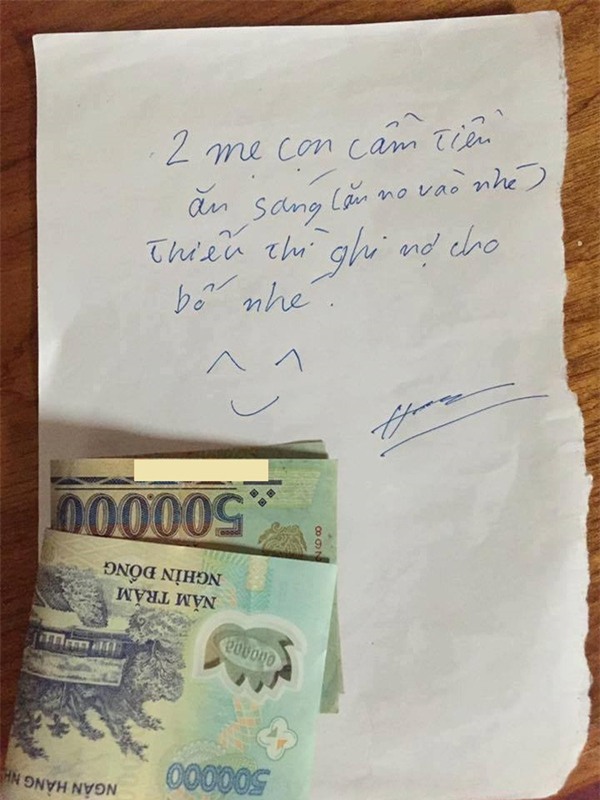 2 mẹ con cầm tiền
ăn sáng (ăn no vào nhé)
Thiếu thì ghi nợ cho
bố nhé.
500.000
NĂM TRĂM
NGHÌN ĐỒNG
500000
NGÂN HÀNG NH
500.000